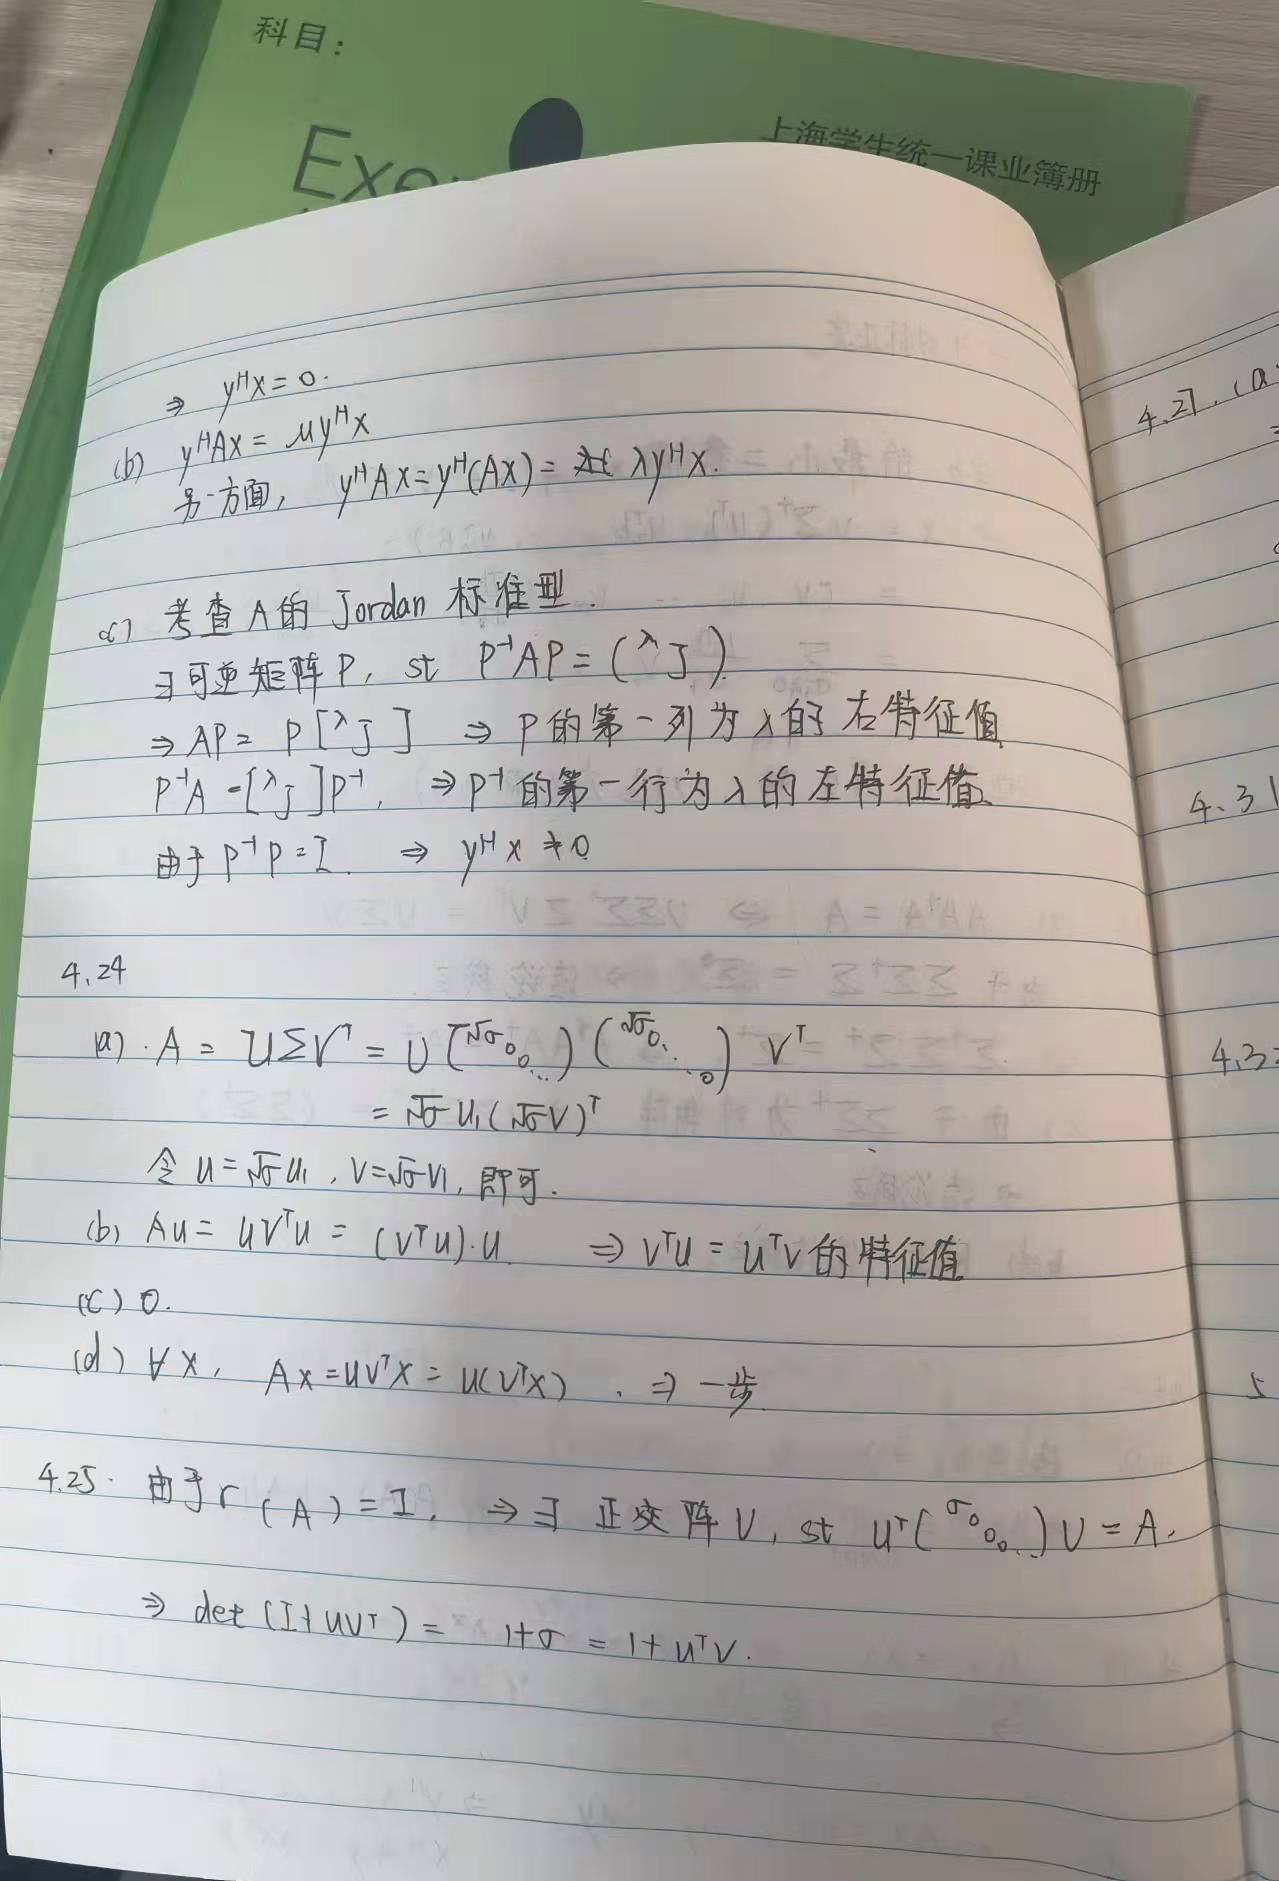 科目：
上海学生统一课业簿册
⇒ yᴴx = 0.
(b) yᴴAx = μyᴴx
另一方面, yᴴAx = yᴴ(Ax) = λyᴴx.
(c) 考查A的 Jordan 标准型.
∃可逆矩阵P, st P⁻¹AP = (λ J)
⇒ AP = P[λ J] ⇒ P的第一列为λ的右特征值
P⁻¹A = [λ J]P⁻¹, ⇒ P⁻¹的第一行为λ的左特征值.
由于P⁻¹P = I. ⇒ yᴴx ≠ 0
4.24
(a). A = UΣVᵀ = U(√σ 0 0 ...)(√σ 0 ... 0)Vᵀ
= √σ U₁(√σ V)ᵀ
令 u = √σ U₁, v = √σ V₁, 即可.
(b) Au = uvᵀu = (vᵀu)·u. ⇒ vᵀu = uᵀv的特征值
(c) 0.
(d) ∀x, Ax = uvᵀx = u(vᵀx). ⇒ 一步.
4.25. 由于r(A) = I. ⇒ ∃ 正交阵U, st Uᵀ(σ 0 0 0 ...)U = A.
⇒ det(I+uvᵀ) = 1+σ = 1+uᵀv.
4.27. (a
4.31